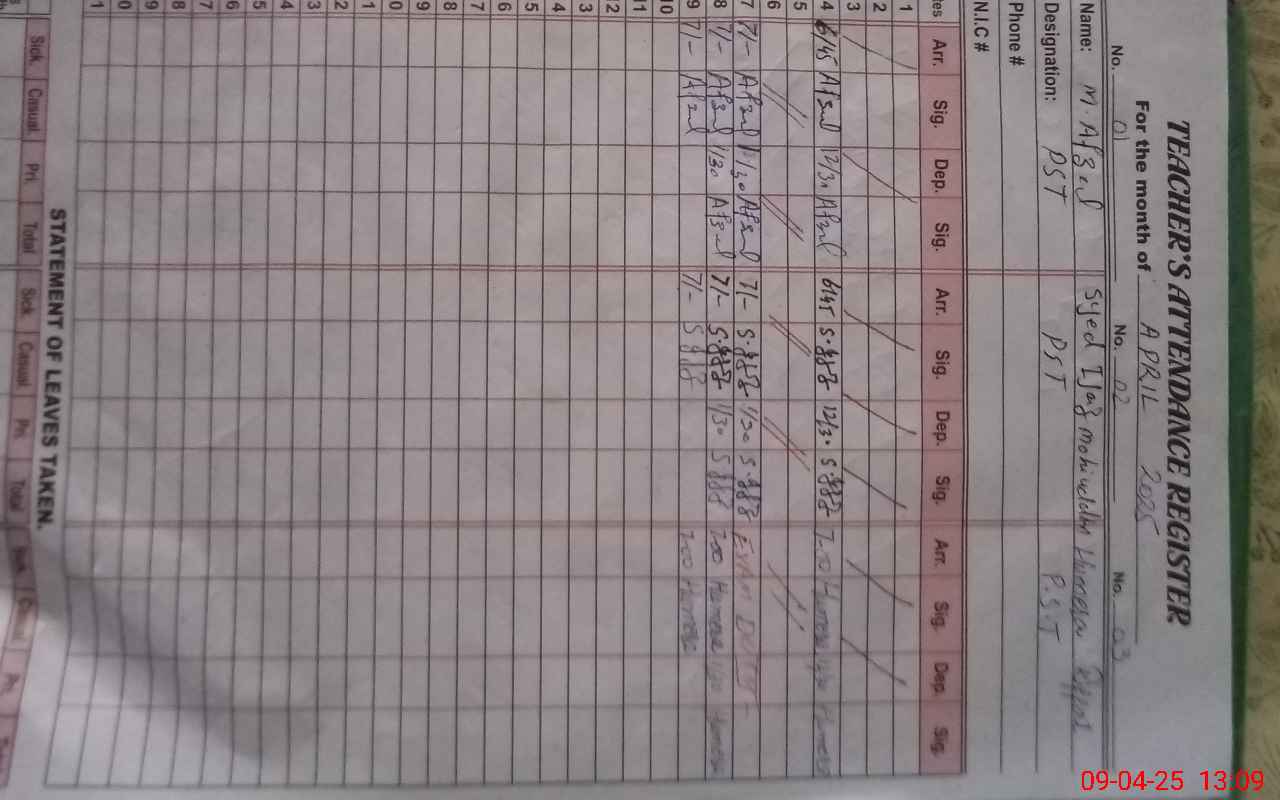 TEACHER'S ATTENDANCE REGISTER
For the month of APRIL 2025
No. 01 No. 02 No. 03
Name: M. Afzal Syed Ijaz mohiuddin Humera
Designation: PST PST P.S.T
Phone #
N.I.C #
tes Arr. Sig. Dep. Sig. Arr. Sig. Dep. Sig. Arr. Sig. Dep. Sig.
1
2
3
4 6/45 Afzal 12/30 Afzal 6/45 12/30 7.00 Humera
5
6
7 7/- Afzal 11/30 Afzal 7/- 1/30 EXAM DUTY -
8 7/- Afzal 1/30 Afzal 7/- 1/30 7.00 Humera 1/30 Humera
9 7/- Afzal 7/- 7.00 Humera
10
11
12
3
4
5
6
7
8
9
0
1
2
3
4
5
6
7
8
9
0
1
STATEMENT OF LEAVES TAKEN.
Sick Casual Pri. Total Sick Casual Pri. Total Sick Casual Pri.
09-04-25 13:09